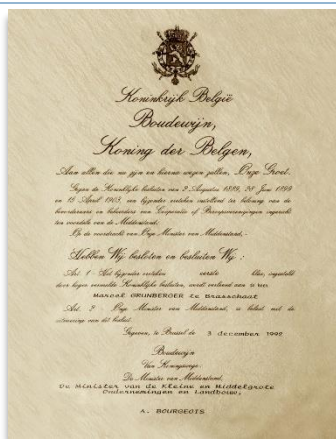 Koninkrijk België
Boudewijn,
Koning der Belgen,
Aan allen die nu zijn en hierna wezen zullen, Onze Groet.
Gezien de Koninklijke besluiten van 2 Augustus 1889, 20 Juni 1898
en 15 April 1903, een bijzonder ereteken instellend ter beloning van de
bevorderaars en beheerders van Coöperatie of Beroepsverenigingen
ten voordele van de Middenstand;
Op de voordracht van Onze Minister van Middenstand,
Hebben Wij besloten en besluiten Wij :
Art. 1 - Het bijzonder ereteken eerste klas, ingesteld
door hoger vermelde Koninklijke besluiten, wordt verleend aan
Marcel GRUNBERGER te Brasschaat
Art. 2 - Onze Minister van Middenstand, is belast met de
uitvoering van dit besluit.
Gegeven, te Brussel de 3 december 1992
Boudewijn
Van Koningswege:
De Minister van Middenstand,
De Minister van de Kleine en Middelgrote
Ondernemingen en Landbouw,
A. BOURGEOIS